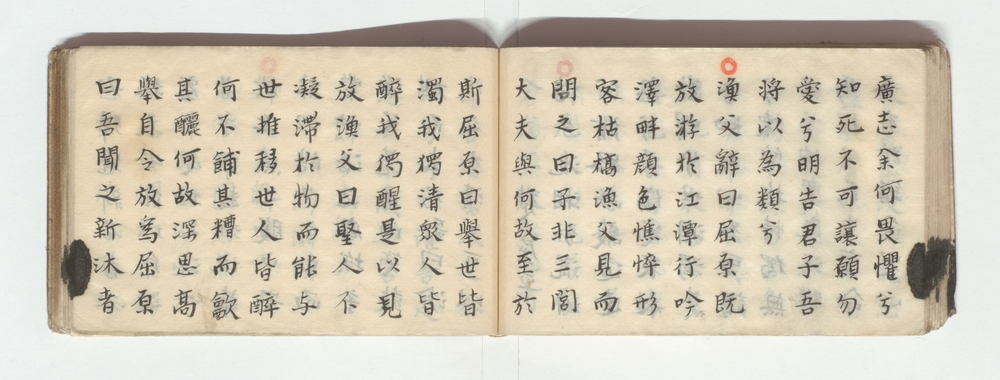 廣志余何畏懼兮
知死不可讓願勿
愛兮明告君子吾
將以為類兮
漁父辭曰屈原既
放游於江潭行吟
澤畔顔色憔悴形
容枯槁漁父見而
問之曰子非三閭
大夫與何故至於
斯屈原曰舉世皆
濁我獨清衆人皆
醉我獨醒是以見
放漁父曰聖人不
凝滯於物而能与
世推移世人皆醉
何不餔其糟而歠
其釃何故深思髙
舉自令放為屈原
曰吾聞之新沐者